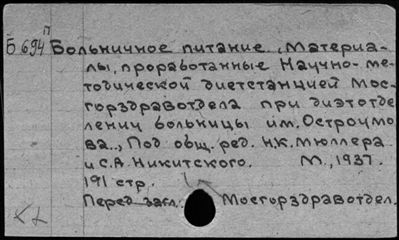 П
Б 694 Больничное питание. Материа-
лы, проработанные Научно-ме-
тодической диетстанцией Мос-
горздравотдела при диэтотде
лении больницы им. Остроумо
ва., Под общ. ред. Н.К. Мюллера
и С.А. Никитского. М., 1937.
191 стр.
Перед загл. Мосгорздравотдел.